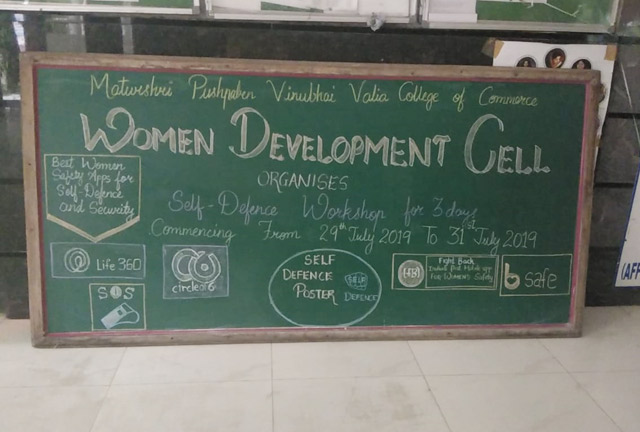 Matushri Pushpaben Vinubhai Valia College of Commerce
WOMEN DEVELOPMENT CELL
ORGANISES
Self-Defence Workshop for 3 days
Commencing From 29th July 2019 To 31st July 2019
Best Women
Safety Apps for
Self-Defence
and Security
Life 360
SOS
circleof6
SELF
DEFENCE
POSTER
SELF
DEFENCE
Fight Back
For Women's Safety
b safe
(AFF